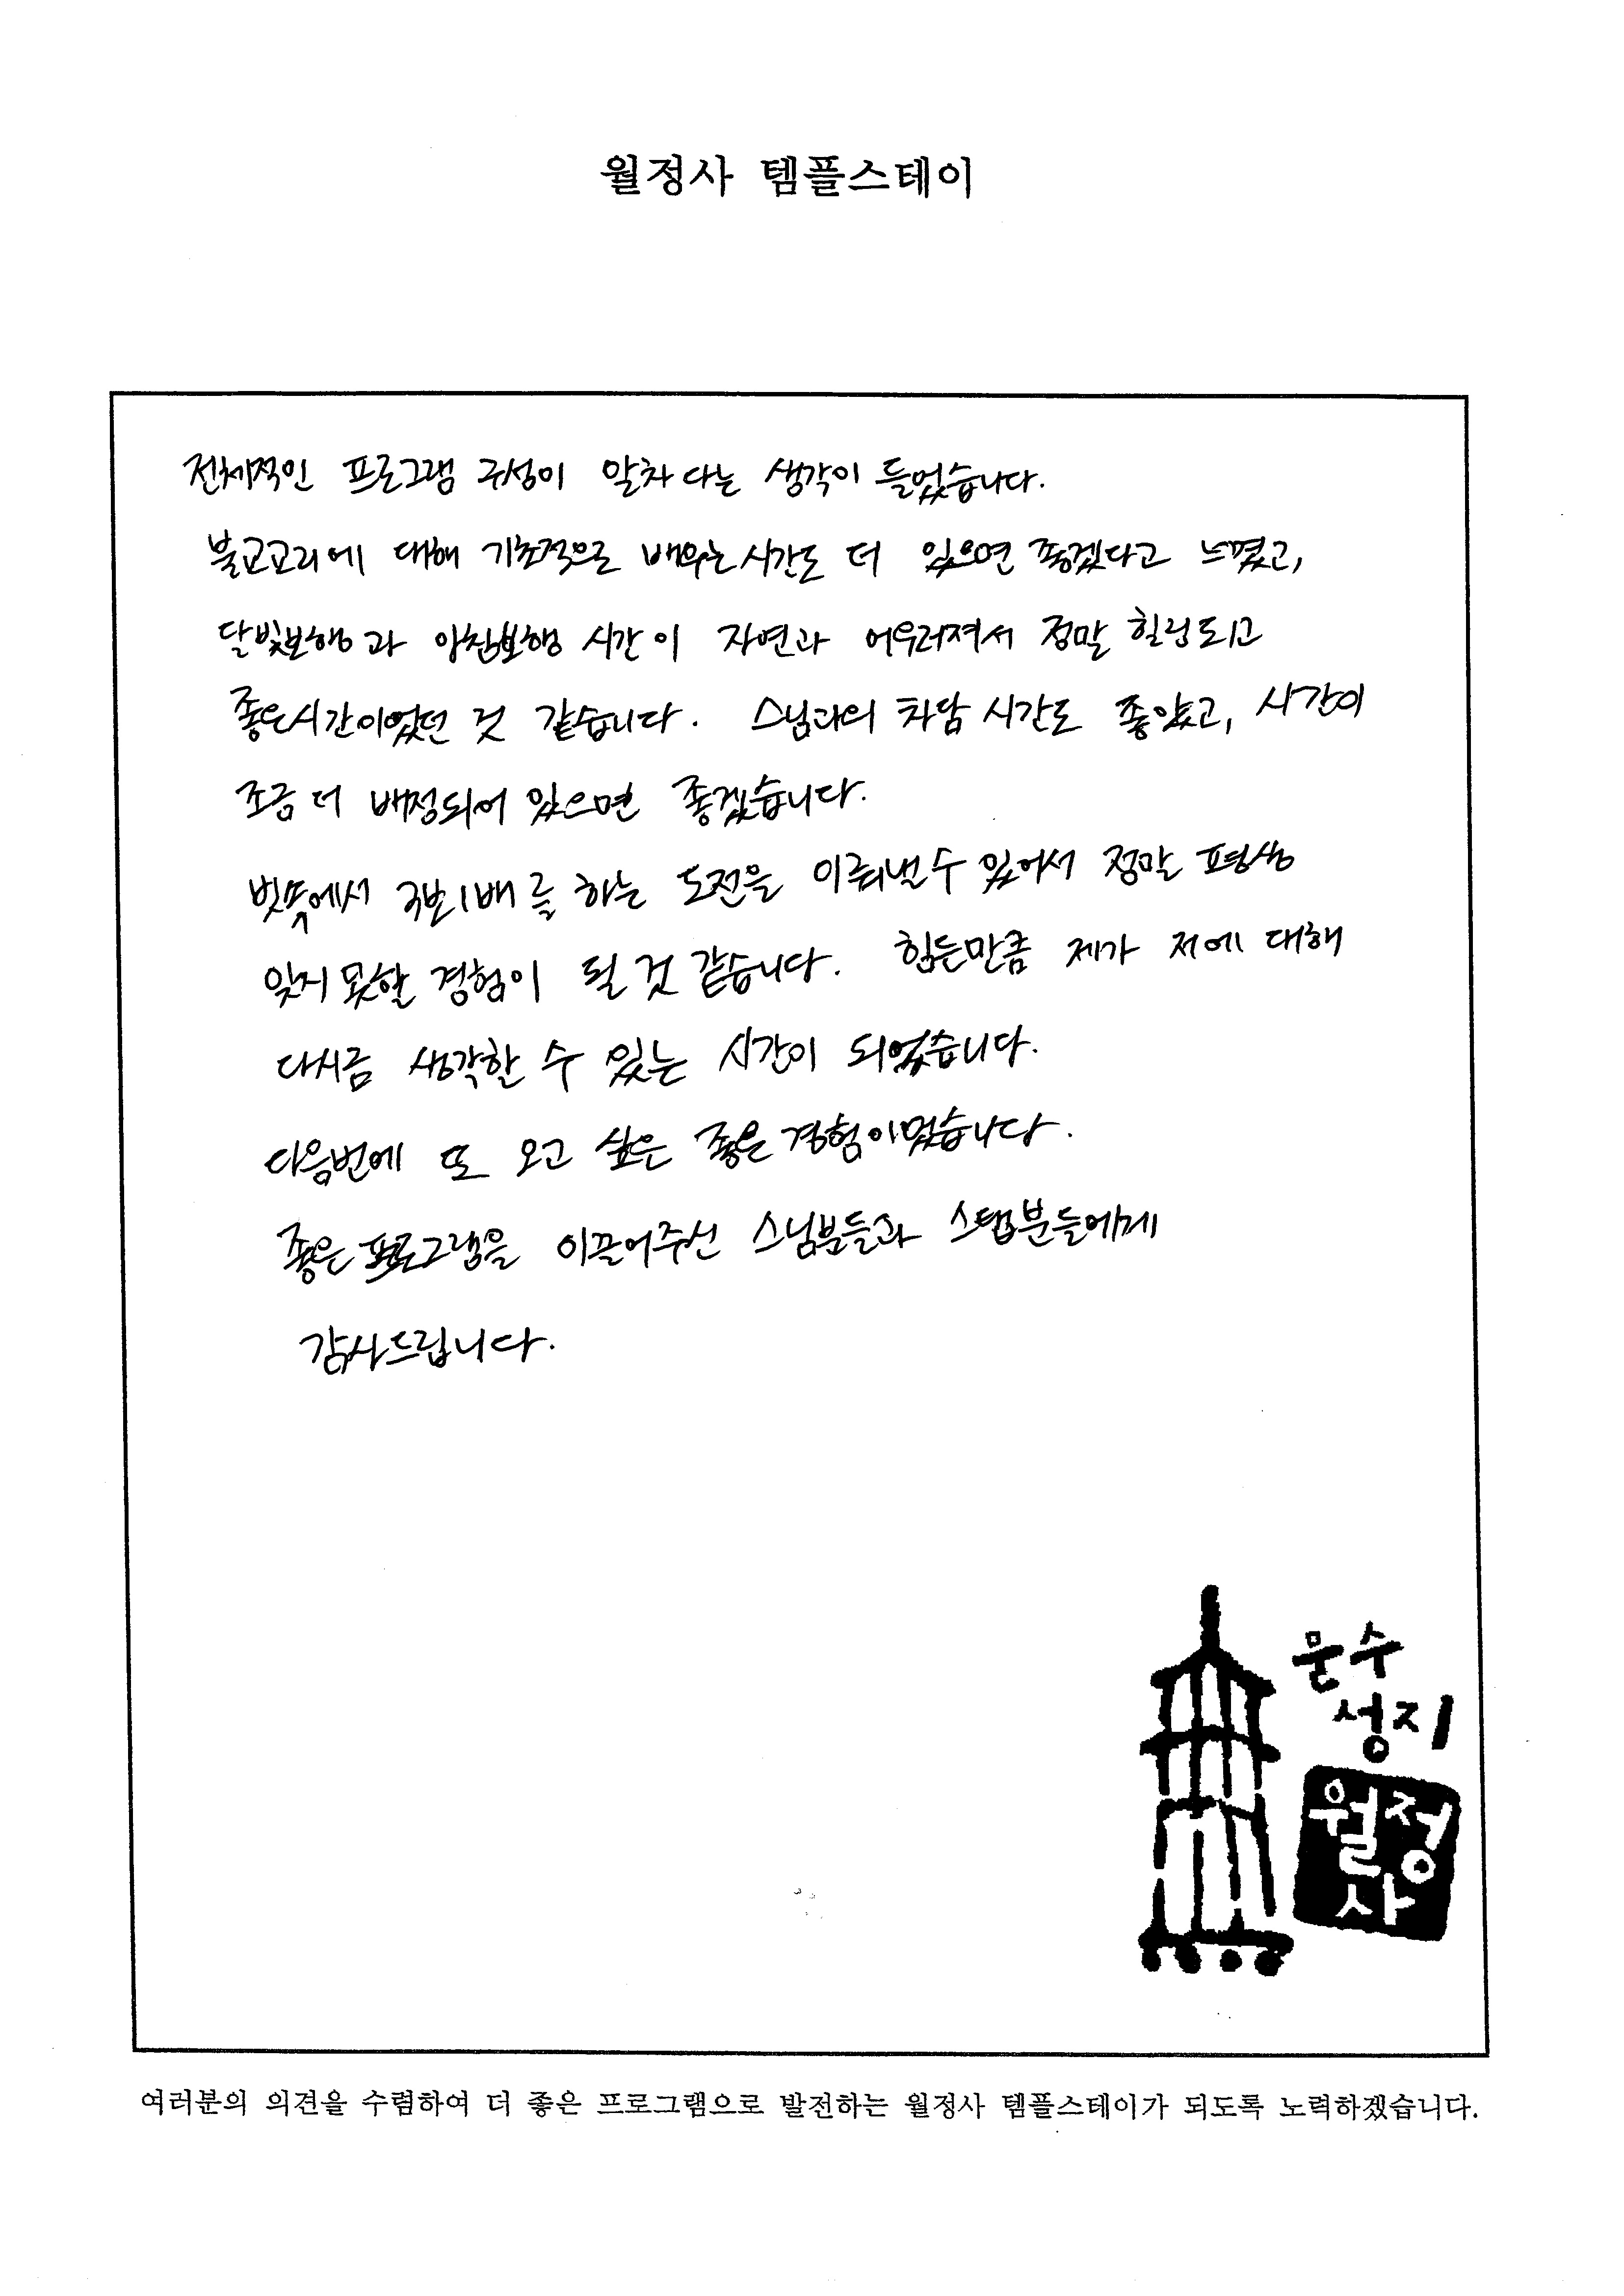 월정사 템플스테이
전체적인 프로그램 구성이 알차다는 생각이 들었습니다.
불교교리에 대해 기초적으로 배우는 시간도 더 있으면 좋겠다고 느꼈고,
달빛보행과 앙칸보행 시간이 자연과 어우러져서 정말 힐링되고
좋은시간이었던 것 같습니다. 스님과의 차담 시간도 좋았고, 시간이
조금 더 배정되어 있으면 좋겠습니다.
빗속에서 3보1배를 하는 도전을 이뤄낼수 있어서 정말 평생
잊지 못할 경험이 될 것 같습니다. 힘든만큼 제가 저에 대해
다시금 생각할 수 있는 시간이 되었습니다.
다음번에 또 오고 싶은 좋은 경험이었습니다.
좋은 프로그램을 이끌어주신 스님분들과 스탭분들에게
감사드립니다.
문수
성지
월정
사
여러분의 의견을 수렴하여 더 좋은 프로그램으로 발전하는 월정사 템플스테이가 되도록 노력하겠습니다.